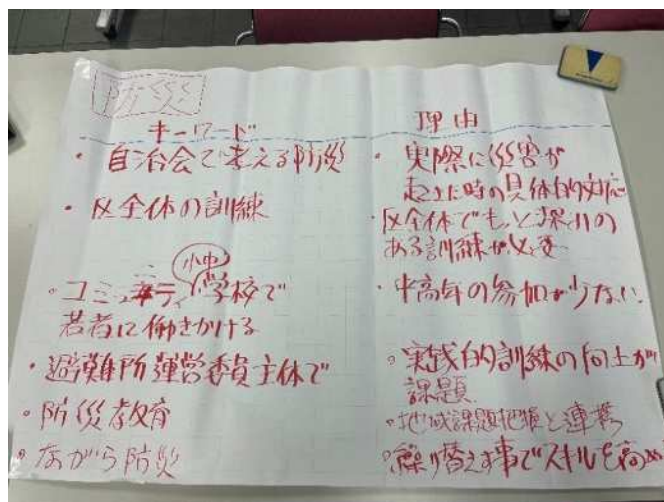 防災
キーワード
・自治会で考える防災
・区全体の訓練
・コミュニティ 小中 学校で
若者に働きかける
・避難所運営委員主体で
・防災教育
・ながら防災
理由
・実際に災害が
起きた時の具体的対応
・区全体でもっと深みの
ある訓練が必要
・中高年の参加が少ない
・実践的訓練の向上が
課題
・地域課題把握と連携
・繰り替えす事でスキルを高め